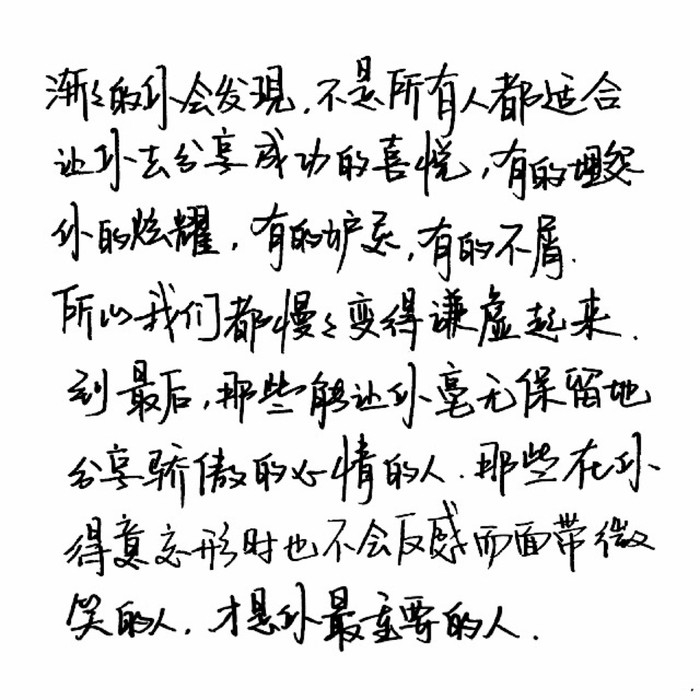 渐渐的你会发现,不是所有人都适合
让你去分享成功的喜悦,有的埋怨
你的炫耀,有的妒忌,有的不屑.
所以我们都慢慢变得谦虚起来.
到最后,那些能让你毫无保留地
分享骄傲的心情的人.那些在你
得意忘形时也不会反感而面带微
笑的人.才是你最重要的人.